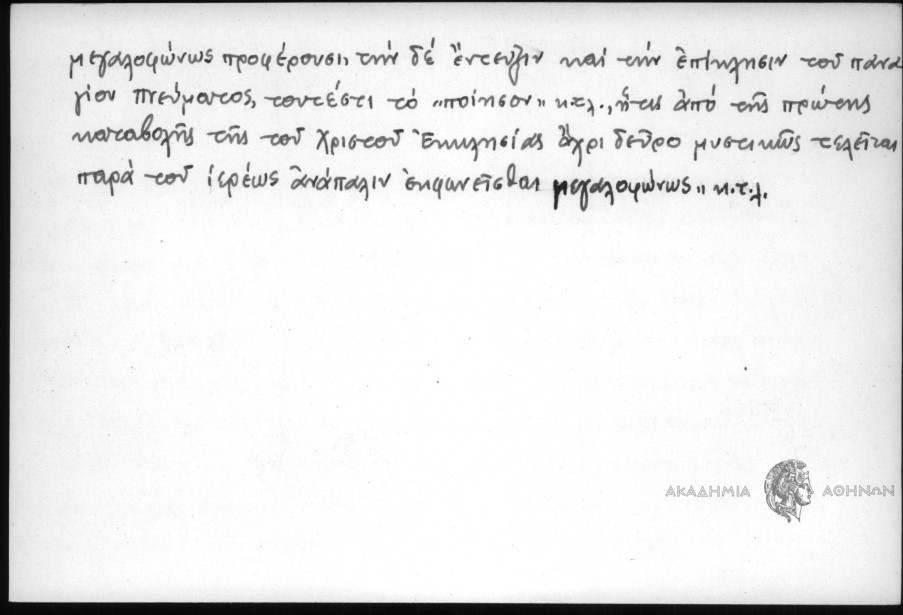 μεγαλοφώνως προφέρουσι, τὴν δέ ἔντευξιν καί τὴν ἐπίκλησιν τοῦ πανα
γίου πνεύματος, τουτέστι τό „ποίησον" κ.τ.λ., ἥτις ἀπό τῆς πρώτης
καταβολῆς τῆς τοῦ Χριστοῦ Ἐκκλησίας ἄχρι δεῦρο μυστικῶς τελεῖται
παρὰ τοῦ ἱερέως ἀνάπαλιν ἐκφωνεῖσθαι μεγαλοφώνως" κ.τ.λ.
ΑΚΑΔΗΜΙΑ ΑΘΗΝΩΝ